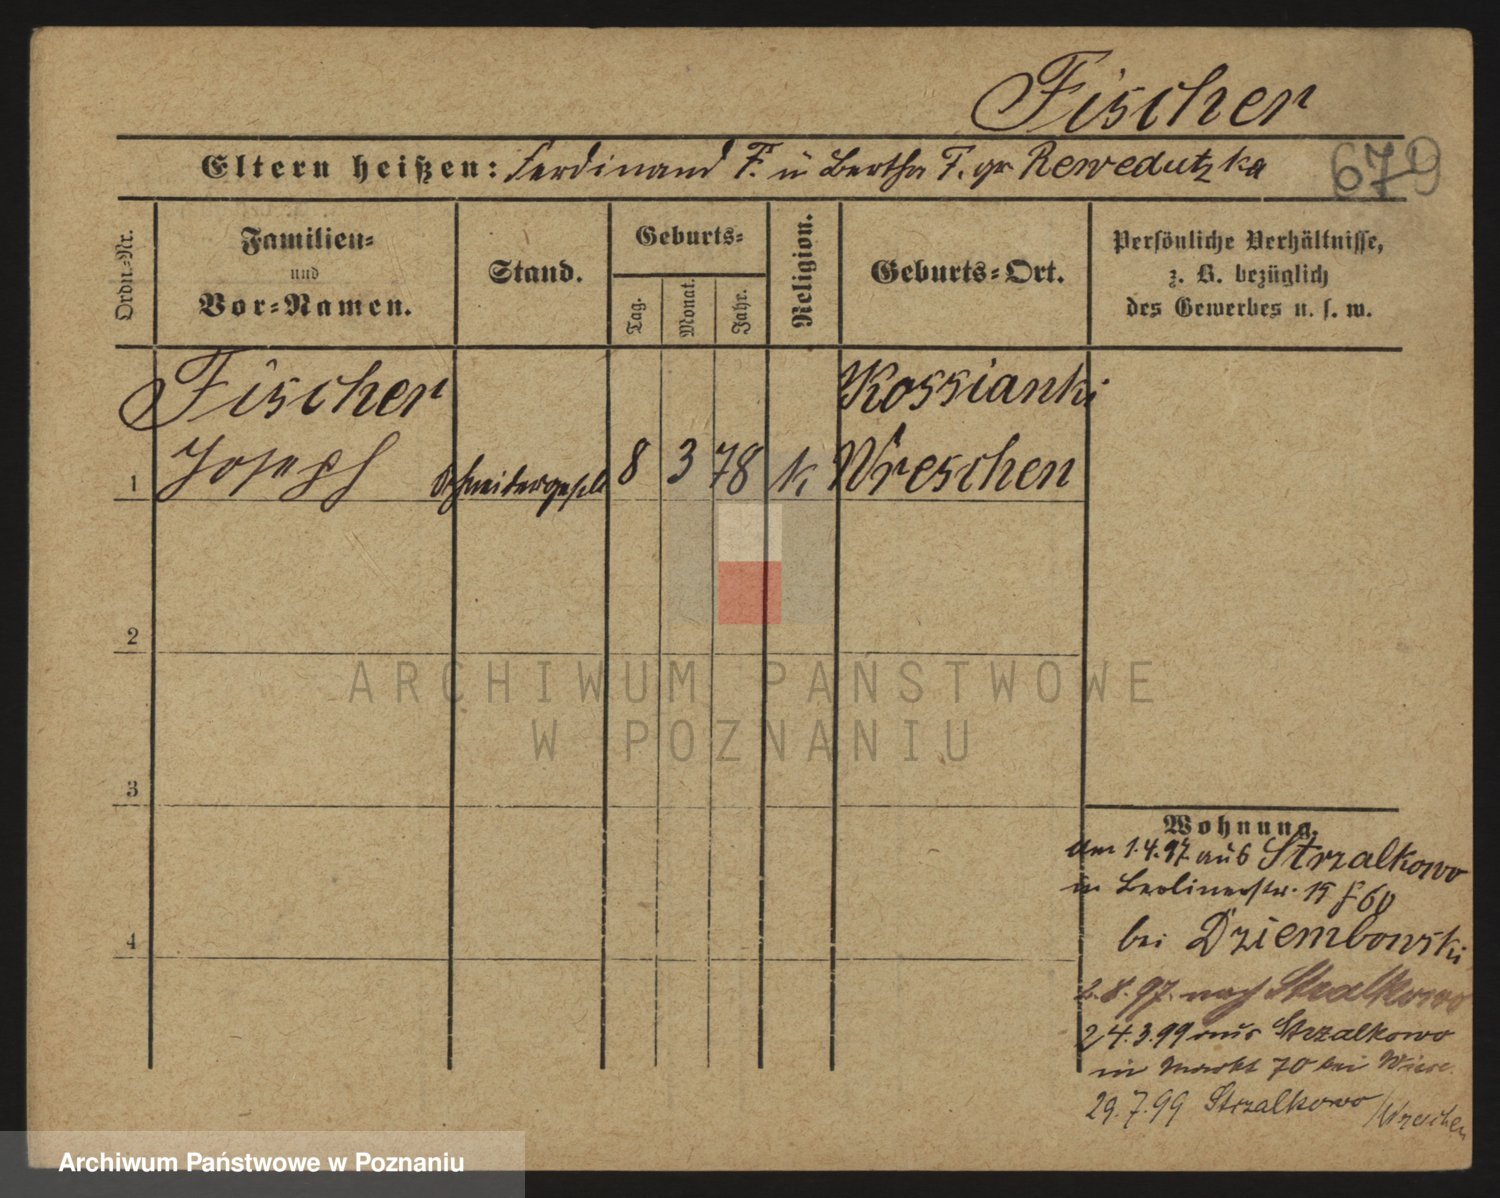 Fischer
Eltern heißen: Ferdinand F. u Bertha F. gb Rewedutzka
679
Ordn.-Nr.
Familien-
und
Vor-Namen.
Stand.
Geburts-
Tag.
Monat.
Jahr.
Religion.
Geburts-Ort.
Persönliche Verhältnisse,
z. B. bezüglich
des Gewerbes u. s. w.
Fischer Kossianki
1 Joseph Schneidergesele 8 3 78 k Wreschen
2
ARCHIWUM PAŃSTWOWE
W POZNANIU
3
Wohnung.
am 1.4.97 aus Strzalkowo
in Berlinerstr. 15
bei Dziembowski
2.8.97. nach Stralkowo
24.3.99 aus Strzalkowo
in Markt 70 bei
29.7.99 Strzalkowo /Wreschen
4
Archiwum Państwowe w Poznaniu